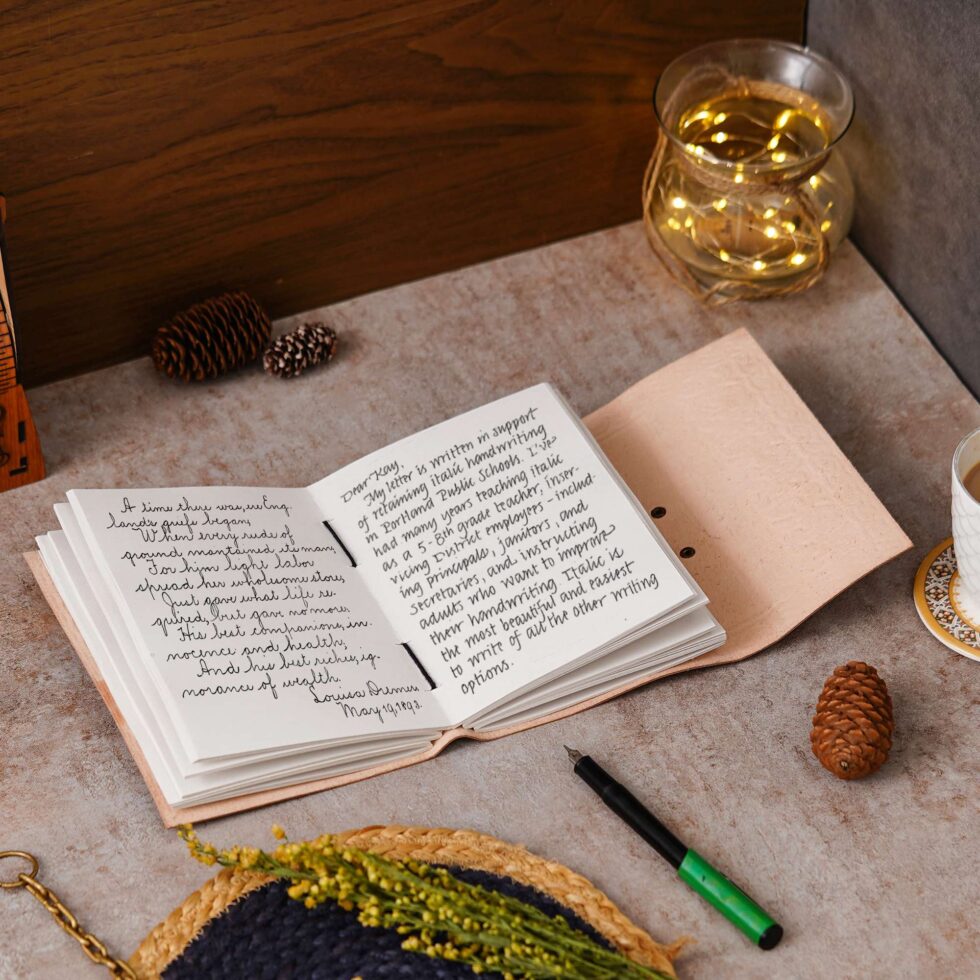 A time there was, ere Eng-
land's griefs began,
When every rude of
ground mantained its man,
For him light labor
spread her wholesome store,
Just gave what life re-
quired, but gave no more,
His best companions, in-
nocence and health,
And his best riches, ig-
norance of wealth.
Louisa Diemer
May 19, 1892.
Dear Kay,
My letter is written in support
of retaining italic handwriting
in Portland Public Schools. I've
had many years teaching italic
as a 5-8th grade teacher, inser-
vicing District employees - includ-
ing principals, janitors, and
secretaries, and, instructing
adults who want to improve
their handwriting. Italic is
the most beautiful and easiest
to write of all the other writing
options.